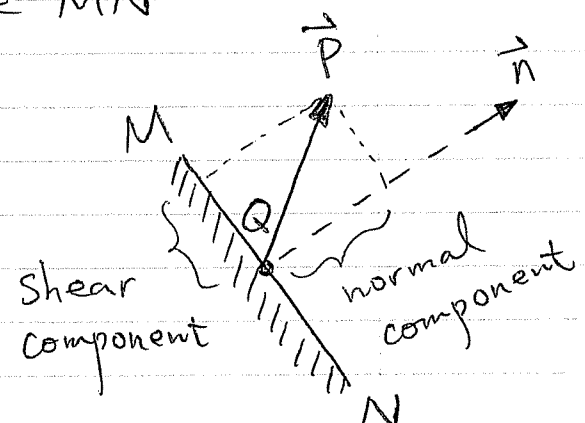 MN
P
n
M
Q
Shear
component
normal
component
N